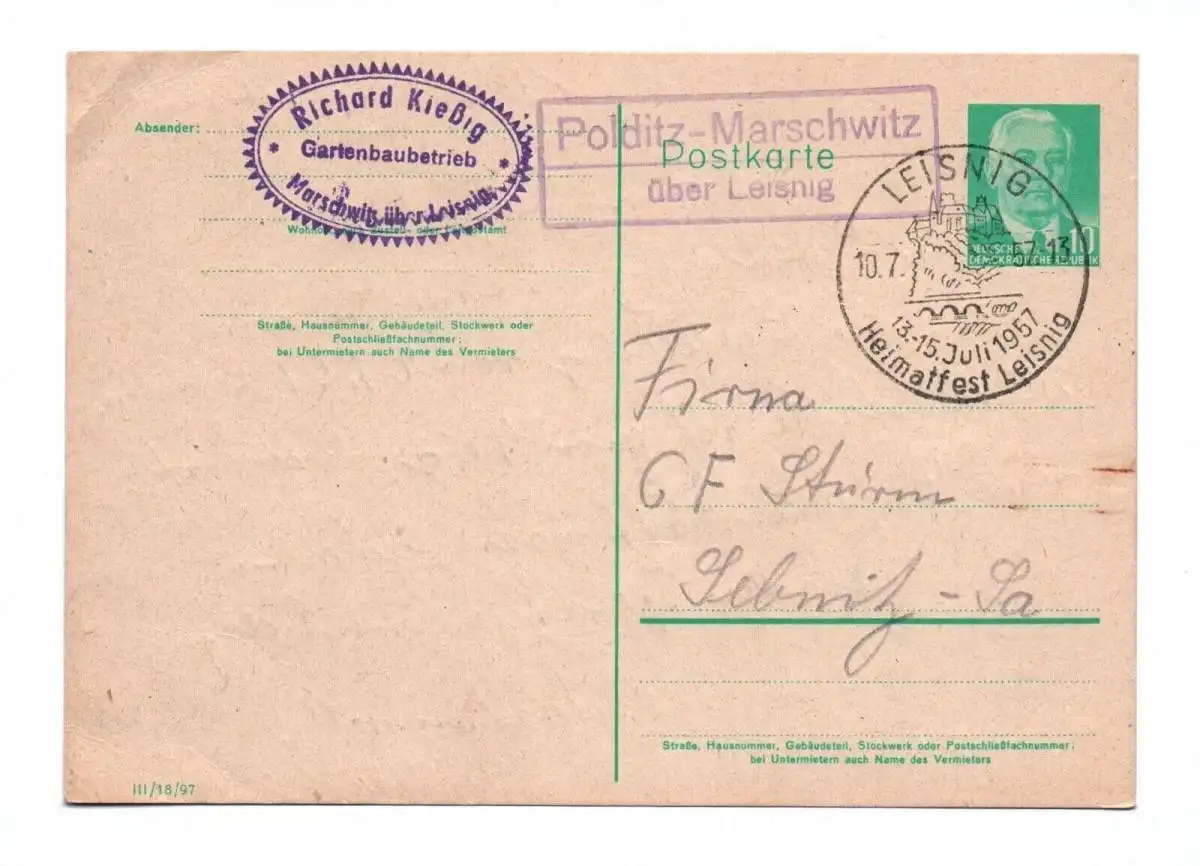 Absender:
Richard Kießig
Gartenbaubetrieb
Marschwitz über Leisnig
Straße, Hausnummer, Gebäudeteil, Stockwerk oder
Postschließfachnummer;
bei Untermietern auch Name des Vermieters
III/18/97
Polditz-Marschwitz
über Leisnig
Postkarte
DEUTSCHE
DEMOKRATISCHE REPUBLIK
10
LEISNIG
10.7. 57-13
13.-15. Juli 1957
Heimatfest Leisnig
Firma
CF Sturm
Sebnitz - Sa
Straße, Hausnummer, Gebäudeteil, Stockwerk oder Postschließfachnummer;
bei Untermietern auch Name des Vermieters